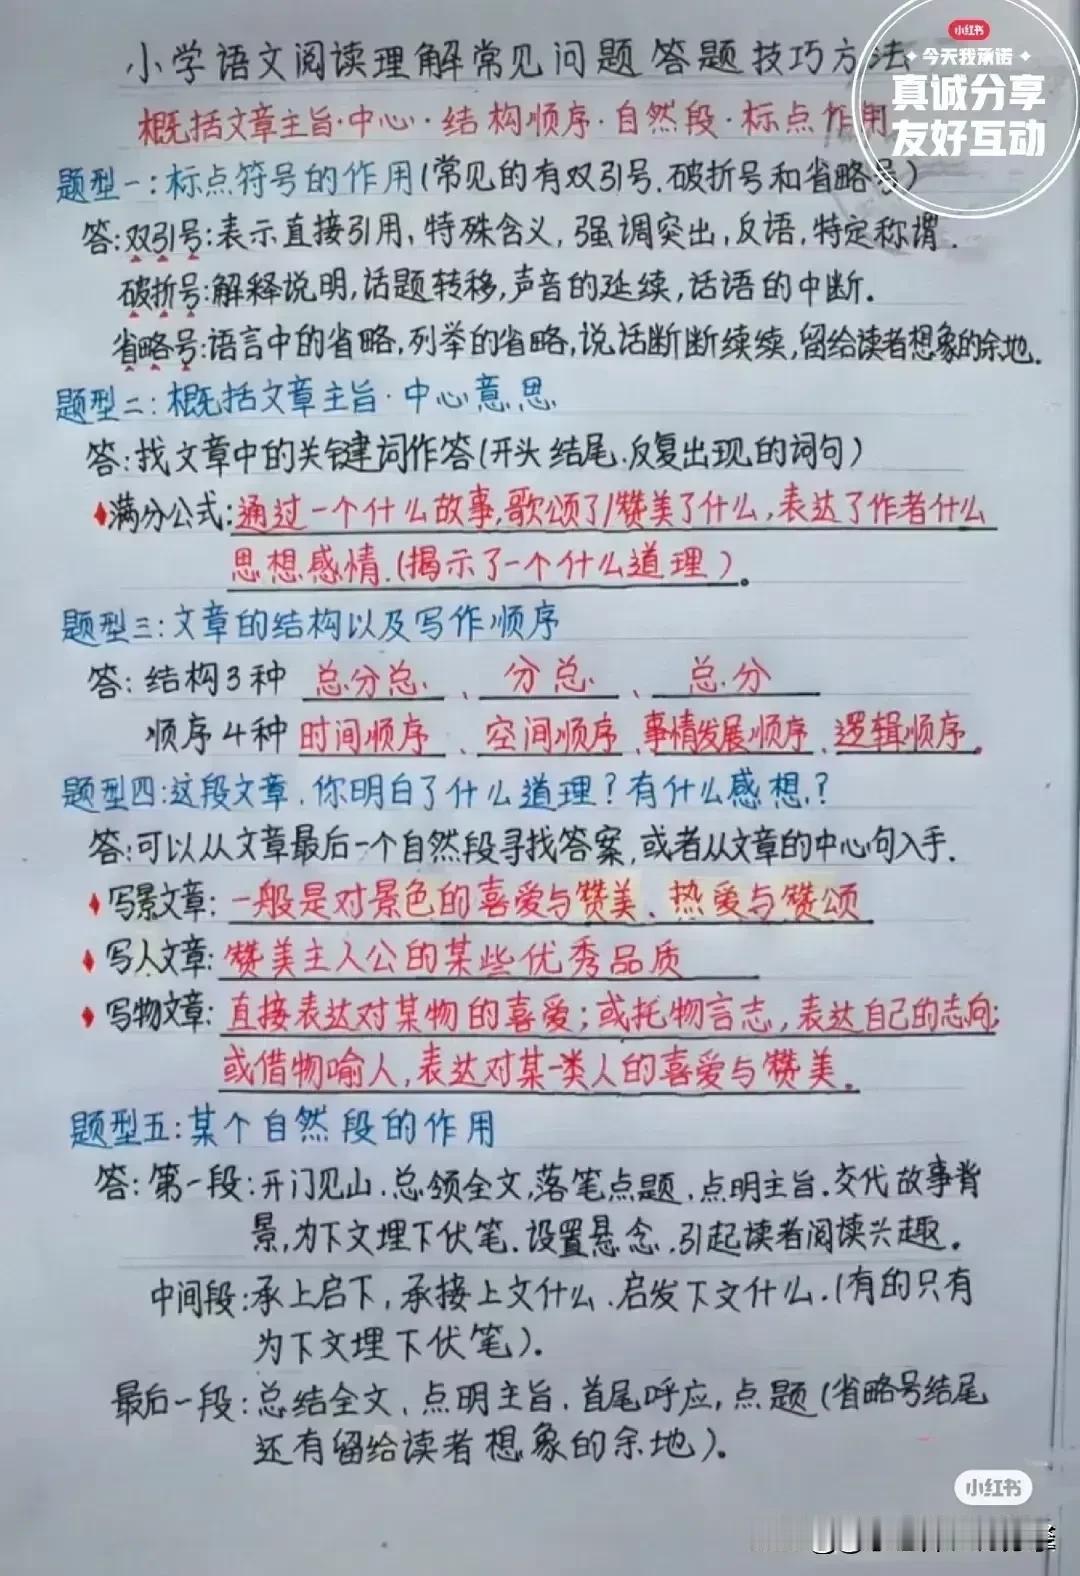 小红书
今天我承诺
真诚分享
友好互动
小学语文阅读理解常见问题答题技巧方法
概括文章主旨·中心·结构顺序·自然段·标点作用
题型一:标点符号的作用(常见的有双引号.破折号和省略号)
答:双引号:表示直接引用、特殊含义,强调突出,反语,特定称谓.
破折号:解释说明,话题转移,声音的延续,话语的中断.
省略号:语言中的省略,列举的省略,说话断断续续,留给读者想象的余地.
题型二:概括文章主旨·中心意思
答:找文章中的关键词作答(开头结尾.反复出现的词句)
♦满分公式:通过一个什么故事,歌颂了/赞美了什么,表达了作者什么
思想感情.(揭示了一个什么道理)。
题型三:文章的结构以及写作顺序
答:结构3种 总分总、分总、总分
顺序4种 时间顺序、空间顺序、事情发展顺序、逻辑顺序。
题型四:这段文章,你明白了什么道理?有什么感想?
答:可以从文章最后一个自然段寻找答案,或者从文章的中心句入手.
♦写景文章:一般是对景色的喜爱与赞美、热爱与赞颂
♦写人文章:赞美主人公的某些优秀品质
♦写物文章:直接表达对某物的喜爱;或托物言志,表达自己的志向;
或借物喻人,表达对某一类人的喜爱与赞美。
题型五:某个自然段的作用
答:第一段:开门见山.总领全文,落笔点题.点明主旨.交代故事背
景,为下文埋下伏笔.设置悬念.引起读者阅读兴趣。
中间段:承上启下,承接上文什么.启发下文什么.(有的只有
为下文埋下伏笔)。
最后一段:总结全文、点明主旨.首尾呼应,点题(省略号结尾
还有留给读者想象的余地)。
小红书